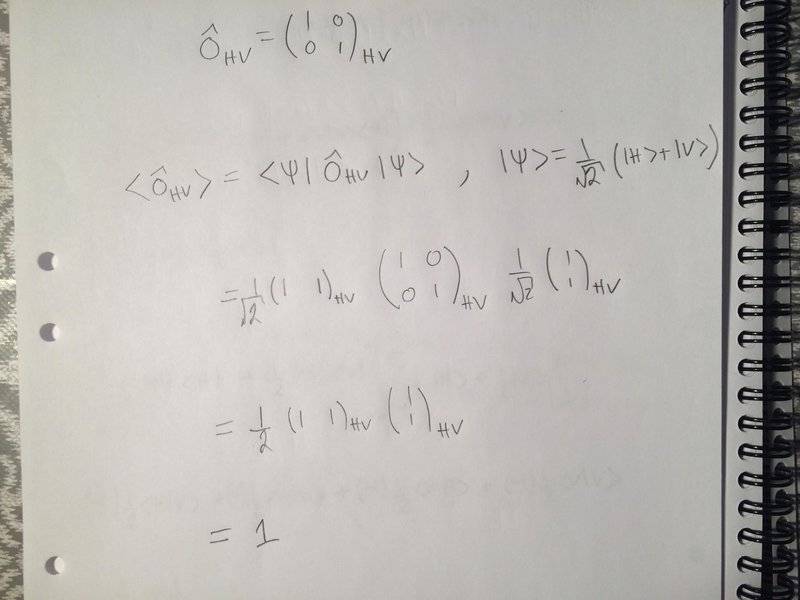 Ô_HV = (1 0 0 1)_HV
<Ô_HV> = <Ψ| Ô_HV |Ψ> , |Ψ> = 1/√2 (|H> + |V>)
= 1/√2 (1 1)_HV (1 0 0 1)_HV 1/√2 (1 1)_HV
= 1/2 (1 1)_HV (1 1)_HV
= 1